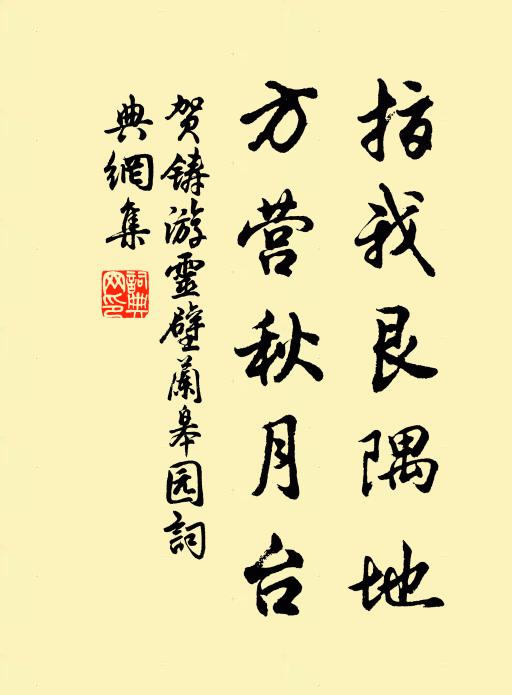 指我艮隅地
方营秋月台
贺铸游靈壁蘭皋园詞
典網集
詞典网印